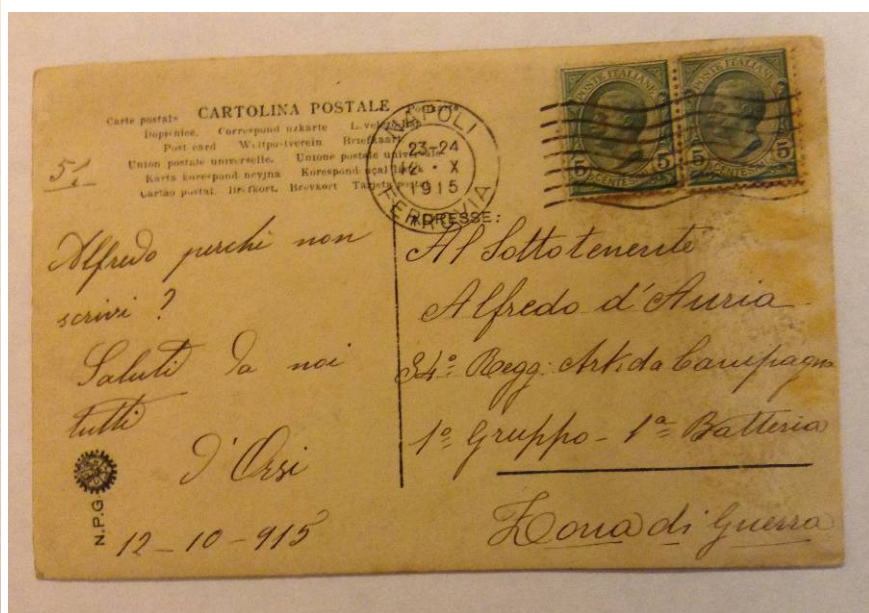 Carte postale CARTOLINA POSTALE Postkarte
Dopisnice. Correspondenzkarte Levelezőlap
Post card Weltpostverein Briefkaart
Union postale universelle. Unione postale universale
Karta korespondencyjna Korespondenční lístek
Cartao postal. Brefkort. Brevkort Tarjeta postal
51
NAPOLI
23-24
12 · X
1915
FERROVIA
POSTE ITALIANE
5 CENTESIMI 5
POSTE ITALIANE
5 CENTESIMI 5
ADRESSE:
Alfredo perchè non
scrivi ?
Saluti da noi
tutti
D'Orsi
12-10-915
N.P.G
Al Sottotenente
Alfredo d'Auria
34º Regg: Art. da Campagna
1º Gruppo - 1ª Batteria
Zona di Guerra